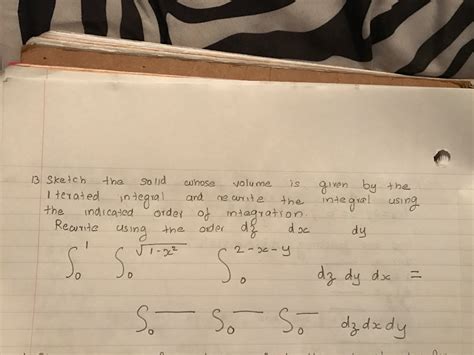 13 Sketch the solid whose volume is given by the
Iterated integral and rewrite the integral using
the indicated order of integration.
Rewrite using the order dz dx dy
∫₀¹ ∫₀^√(1-x²) ∫₀^(2-x-y) dz dy dx =
∫₀^— ∫₀^— ∫₀^— dz dx dy